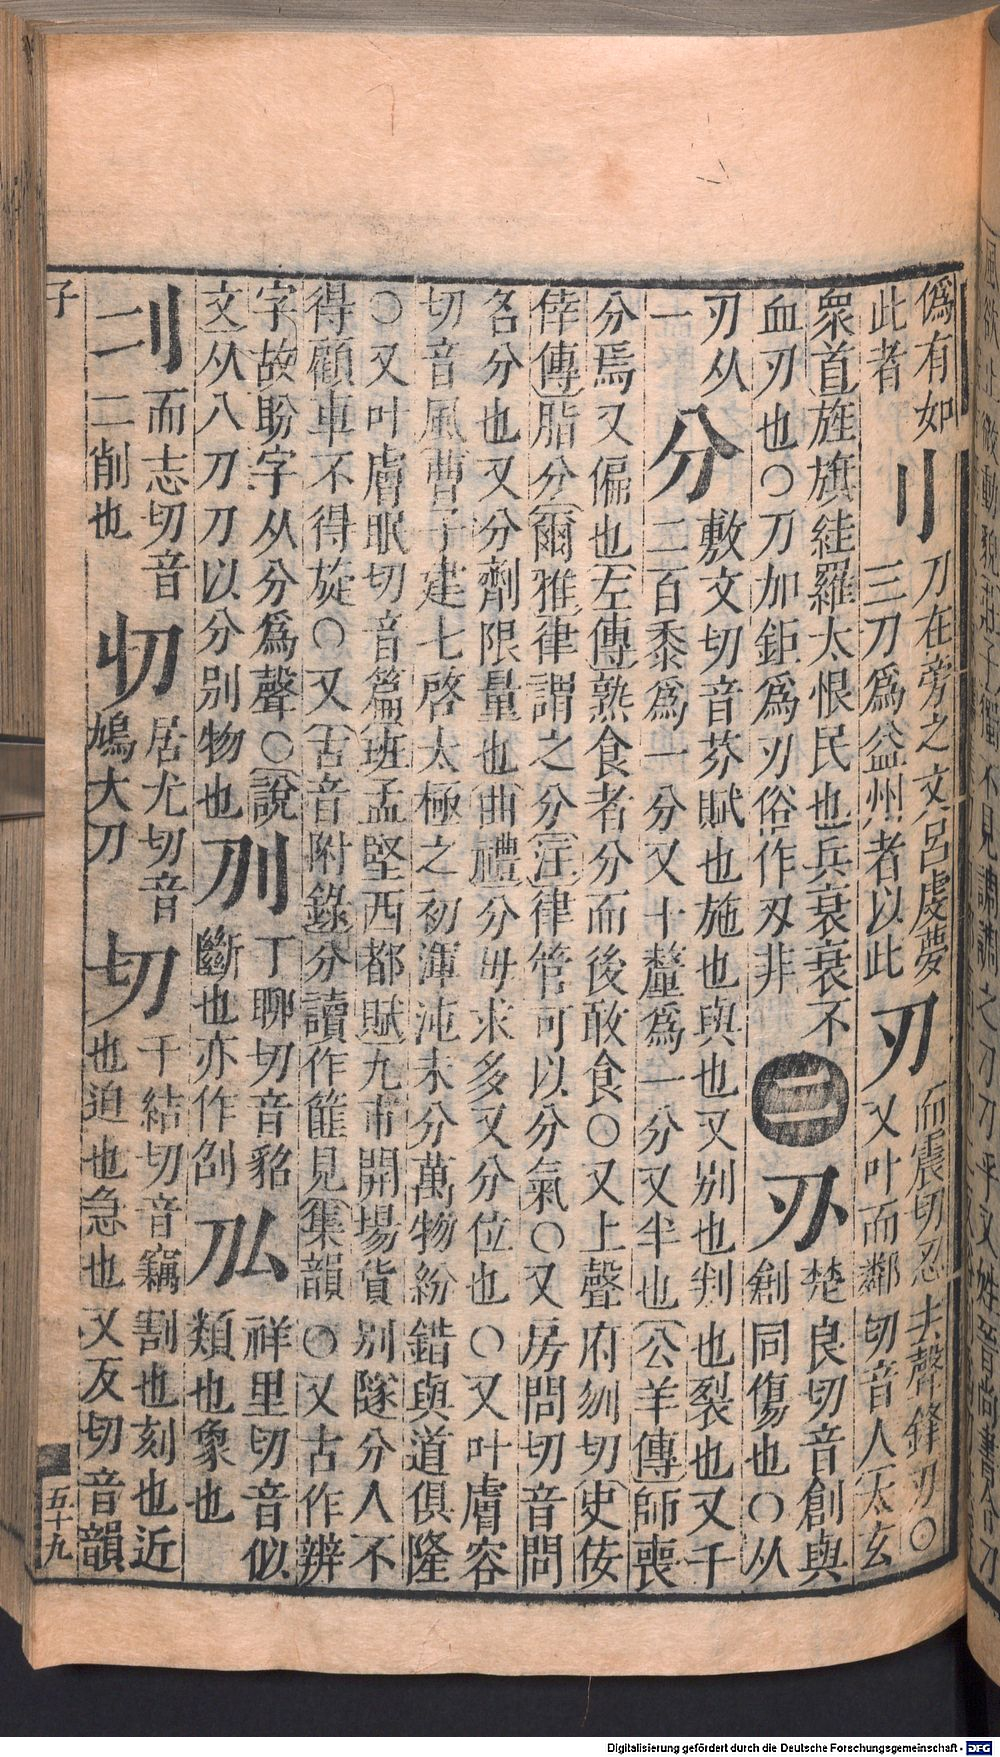 爲有如
此者
刂
刀在旁之文呂虔夢
三刀爲益州者以此
刃
而震切忍去聲鋒刃○
又叶而鄰切音人(太玄
衆首)旌旗絓羅太恨民也兵衰衰不
血刃也○刀加鉅爲刃俗作刄非
二
刅
楚良切音創與
創同傷也○从
刃从
一
分
敷文切音芬賦也施也與也又别也判也裂也又千
二百黍爲一分又十釐爲一分又半也(公羊傳)師喪
分焉又偏也(左傳)熟食者分而後敢食○又上聲府刎切(史佞
倖傳)脂分(爾雅)律謂之分(注)律管可以分氣○又房問切音問
名分也又分劑限量也(曲禮)分毋求多又分位也○又叶膚容
切音風(曹子建七啓太極之初渾沌未分萬物紛錯與道俱隆
○又叶膚眠切音篇(班孟堅西都賦九市開場貨别隧分人不
得顧車不得旋○又(古音附錄分讀作 見(集韻)○又古作辨
字故盼字从分爲聲○(說
文)从八刀刀以分别物也
丁聊切音貂
斷也亦作刟
祥里切音似
類也象也
而志切音
二削也
居尤切音
鳩大刀
切
千結切音竊割也刻也近
也迫也急也又友切音韻
子
五十九
Digitalisierung gefördert durch die Deutsche Forschungsgemeinschaft - DFG